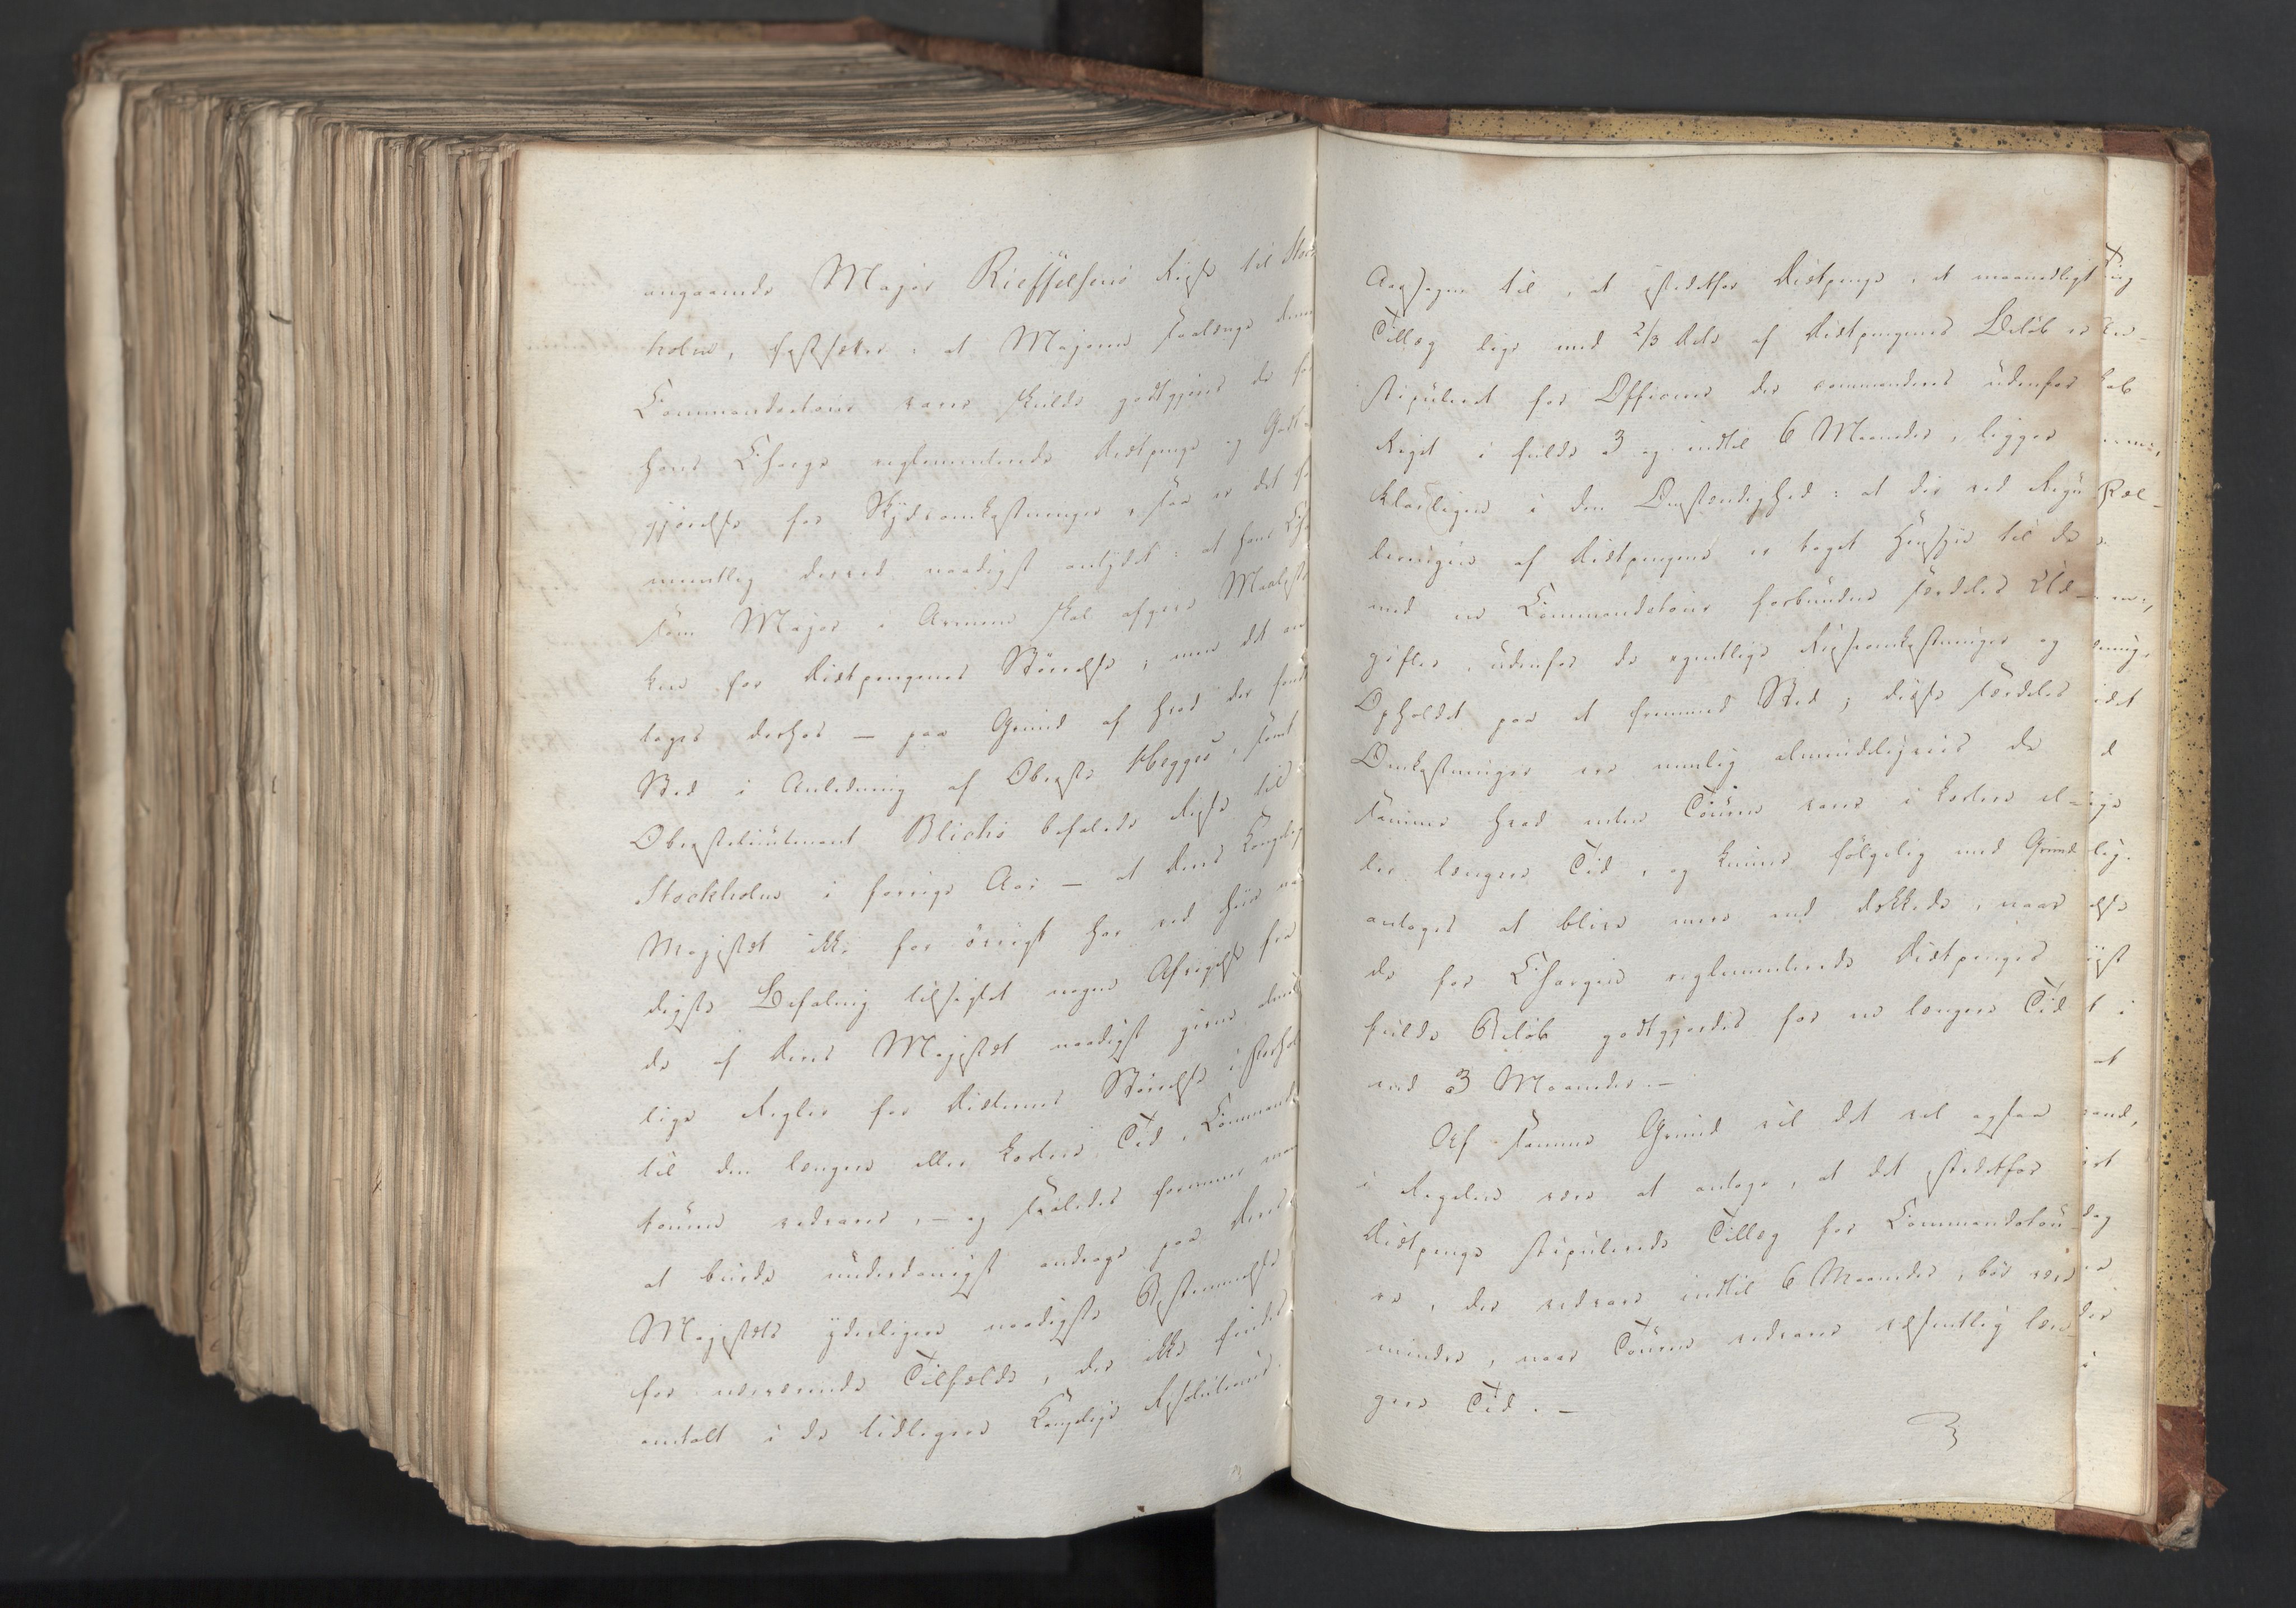 angaaende Major Rieffelsens Reise til Stock
holm, fastsætter: at Majoren saalænge denne
Commandotour varer skulde godtgjøres de for
hans Charge reglementerede Diætpenge og Godt-
gjørelse for Skydsomkostninger, saa er det for
mentlig derved naadigst antydet: at hans Charge
som Major i Armeen skal afgive Maalesto
ken for Diætpengenes Størrelse; men det an
tages derhos — paa Grund af hvad der fandt
Sted i Anledning af Oberst Hegges, samt
Oberstlieutenant Blichs befalede Reise til
Stockholm i forrige Aar — at Deres Kongelige
Majestæt ikke for øvrigt har ved hiin naa
digste Befaling tilsigtet nogen Afvigelse fra
de af Deres Majestæt naadigst givne almin
lige Regler for Diæternes Størrelse i Forhold
til den længere eller kortere Tid, Commando
touren vedvarer, — og saaledes formener man
at burde underdanigst andrage paa Deres
Majestæts yderligere naadigste Bestemmelse
for nærværende Tilfælde, der ikke findes
omtalt i de tidligere Kongelige Resolutioner.
Aarsagen til, at istedetfor Diætpenge, et maanedligt
Tillæg lige med 2/3 Dele af Diætpengenes Beløb er
stipuleret for Officerer der commanderes udenfor
Riget i fulde 3 og indtil 6 Maaneder, ligger
klarligen i den Omstændighed: at der ved Regu
leringen af Diætpengene er taget Hensyn til de
med en Commandotour forbundne særdeles Ud-
gifter, udenfor de egentlige Reiseomkostninger og
Opholdet paa et fremmed Sted; disse særdeles
Omkostninger ere nemlig almindeligviis de
samme hvad enten Touren varer i kortere el-
ler længere Tid, og kunne følgelig med Grund
antages at blive mere end dækkede, naar
de for Chargen reglementerede Diætpenges
fulde Beløb godtgjordes for en længere Tid
end 3 Maaneder.—
Af samme Grund vil det vel ogsaa
i Regelen være at antage, at det istedetfor
Diætpenge stipulerede Tillæg for Commandotou-
re, der vedvare indtil 6 Maaneder, bør være
mindre, naar Touren vedvarer væsentlig læn
gere Tid.—